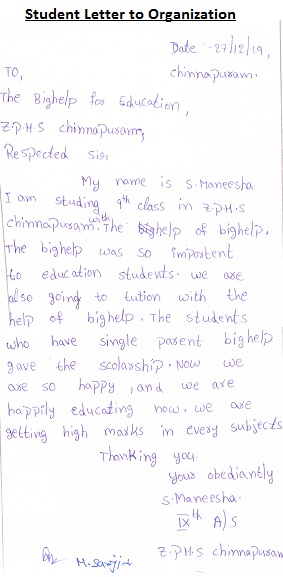 Student Letter to Organization
Date :- 27/12/19,
chinnapuram.
TO,
The Bighelp for Education,
Z.P.H.S chinnapuram,
Respected Sir.
My name is S.Maneesha
I am studing 9th class in Z.P.H.S
chinnapuram. with The bighelp of bighelp.
The bighelp was so importent
to education students. we are
also going to tution with the
help of bighelp. The students
who have single parent bighelp
gave the scolarship. Now we
are so happy, and we are
happily educating now. we are
getting high marks in every subjects
Thanking you.
your obediantly
S.Maneesha.
IXth A/S
Z.P.H.S chinnapuram